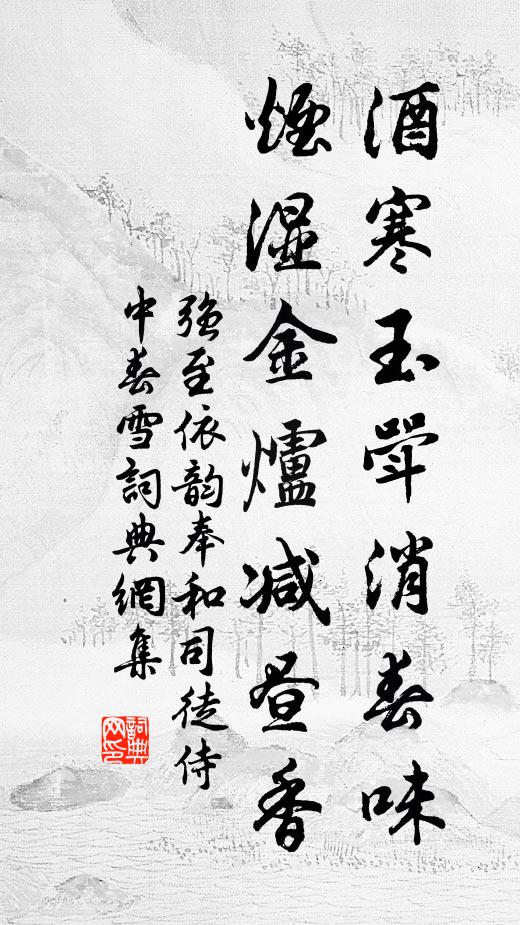 酒寒玉斝消春味
煙湿金爐減昼香
強至依韵奉和司徒侍
中春雪詞典網集
詞典网印